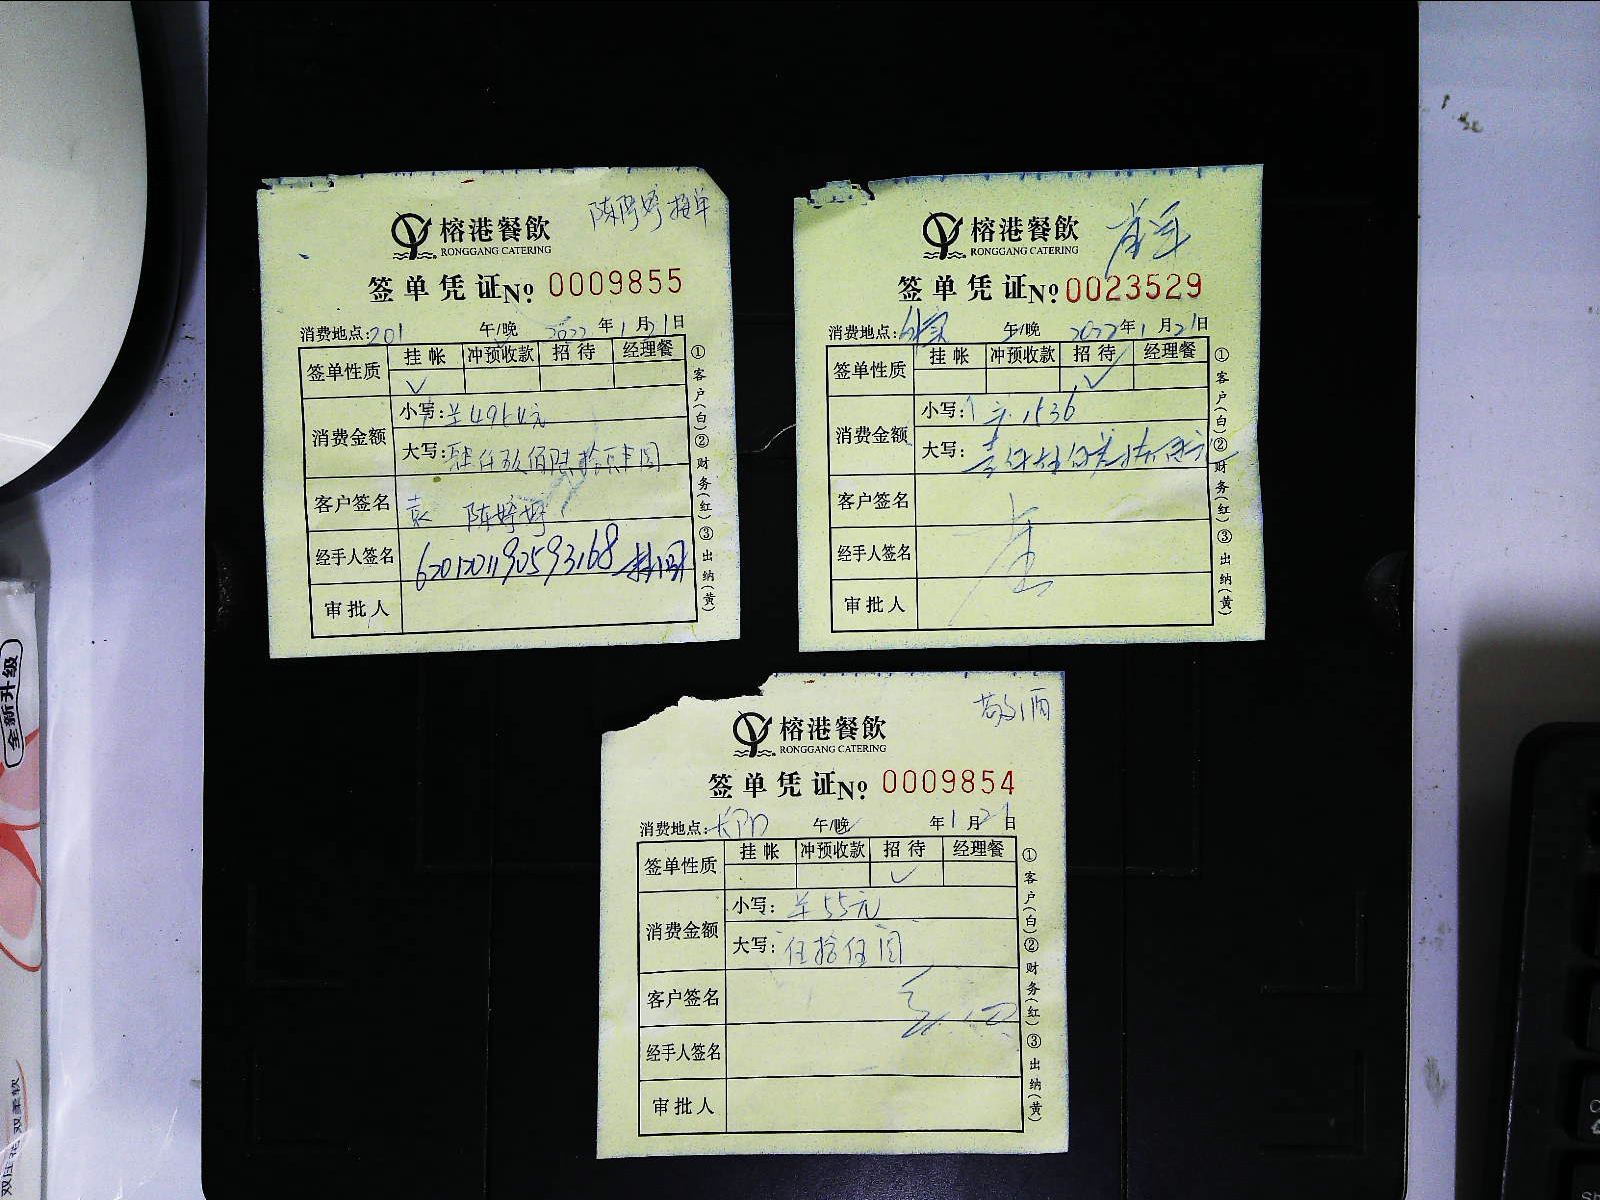 陈婷婷接单
榕港餐飲
RONGGANG CATERING
签单凭证 № 0009855
消费地点:201 午/晚 2022年1月21日
签单性质 挂帐 冲预收款 招待 经理餐
✓
消费金额
小写:¥4964元
大写:肆仟玖佰陆拾肆圆
客户签名 袁 陈婷婷
经手人签名 6201201190593168
审批人
①客户(白)②财务(红)③出纳(黄)
榕港餐飲
RONGGANG CATERING
签单凭证 № 0023529
消费地点: 午/晚 2022年1月21日
签单性质 挂帐 冲预收款 招待 经理餐
✓
消费金额
小写: 1536
大写:壹仟伍佰叁拾陆元
客户签名
经手人签名
审批人
①客户(白)②财务(红)③出纳(黄)
敬酒
榕港餐飲
RONGGANG CATERING
签单凭证 № 0009854
消费地点: 午/晚 年1月21日
签单性质 挂帐 冲预收款 招待 经理餐
✓
消费金额
小写:¥55元
大写:伍拾伍圆
客户签名
经手人签名
审批人
①客户(白)②财务(红)③出纳(黄)
全新升级